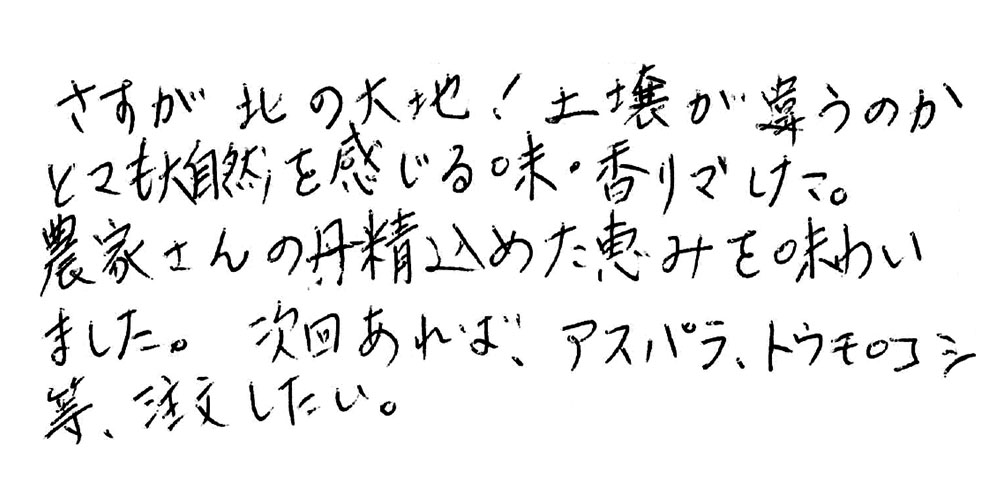 さすが北の大地！土壌が違うのか
とても大自然を感じる味・香りでした。
農家さんの丹精込めた恵みを味わい
ました。次回あれば、アスパラ、トウモロコシ
等、注文したい。